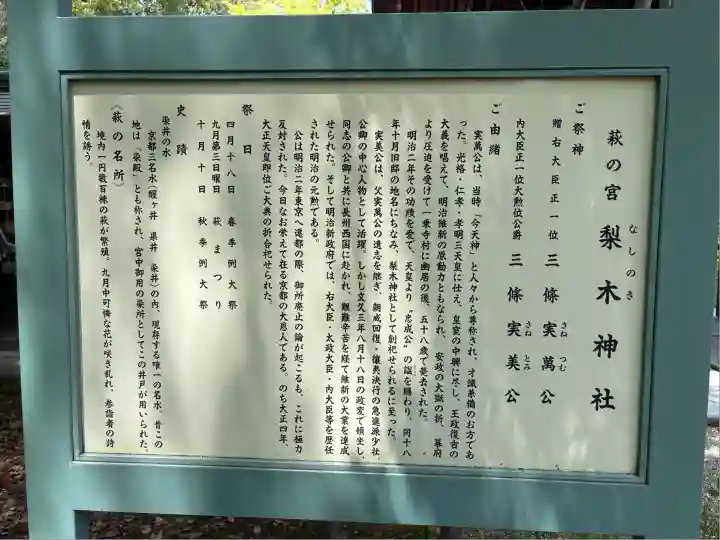 萩の宮 梨木神社
なしのき
ご祭神
贈右大臣正一位 三條実萬公
さね つむ
内大臣正一位大勲位公爵 三條実美公
さね とみ
ご由緒
実萬公は、当時「今天神」と人々から尊称され、才識兼備のお方であ
った。光格・仁孝・孝明三天皇に仕え、皇室の中興に尽し、王政復古の
大義を唱えて、明治維新の原動力ともなられ、安政の大獄の折、幕府
より圧迫を受けて一乗寺村に幽居の後、五十八歳で薨去された。
明治二年その功績を愛で、天皇より〝忠成公〟の諡を賜わり、同十八
年十月旧邸の地名にちなみ、梨木神社として創祀せられるに至った。
実美公は、父実萬公の遺志を継ぎ、朝威回復・攘夷決行の急進派少壮
公卿の中心人物として活躍。しかし文久三年八月十八日の政変で頓坐し、
同志の公卿と共に長州西国に赴かれ、艱難辛苦を経て維新の大業を達成
せられた。そして明治新政府では、右大臣・太政大臣・内大臣等を歴任
された明治の元勲である。
公は明治二年東京へ遷都の際、御所廃止の論が起こるも、これに極力
反対された。今日なお栄えて在る京都の大恩人である。のち大正四年、
大正天皇即位ご大典の折合祀せられた。
祭日
四月十八日 春季例大祭
九月第三日曜日 萩まつり
十月十日 秋季例大祭
史蹟
染井の水
京都三名水(醒ヶ井 県井 染井)の内、現存する唯一の名水。昔この
地は「染殿」とも称され、宮中御用の染所としてこの井戸が用いられた。
(萩の名所)
境内一円数百株の萩が繁殖。九月中可憐な花が咲き乱れ、参詣者の詩
情を誘う。